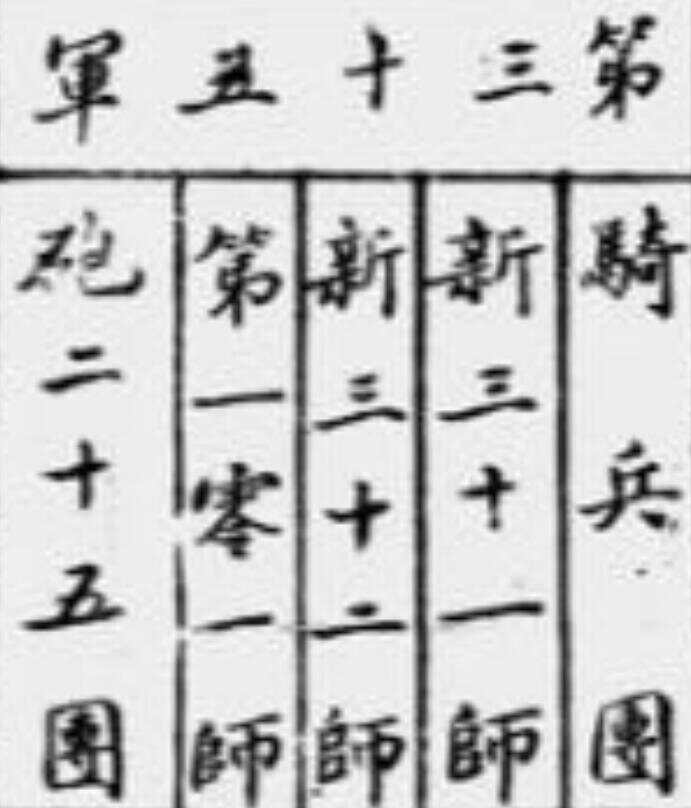 第三十五軍
騎兵團
新三十一師
新三十二師
第一零一師
砲二十五團